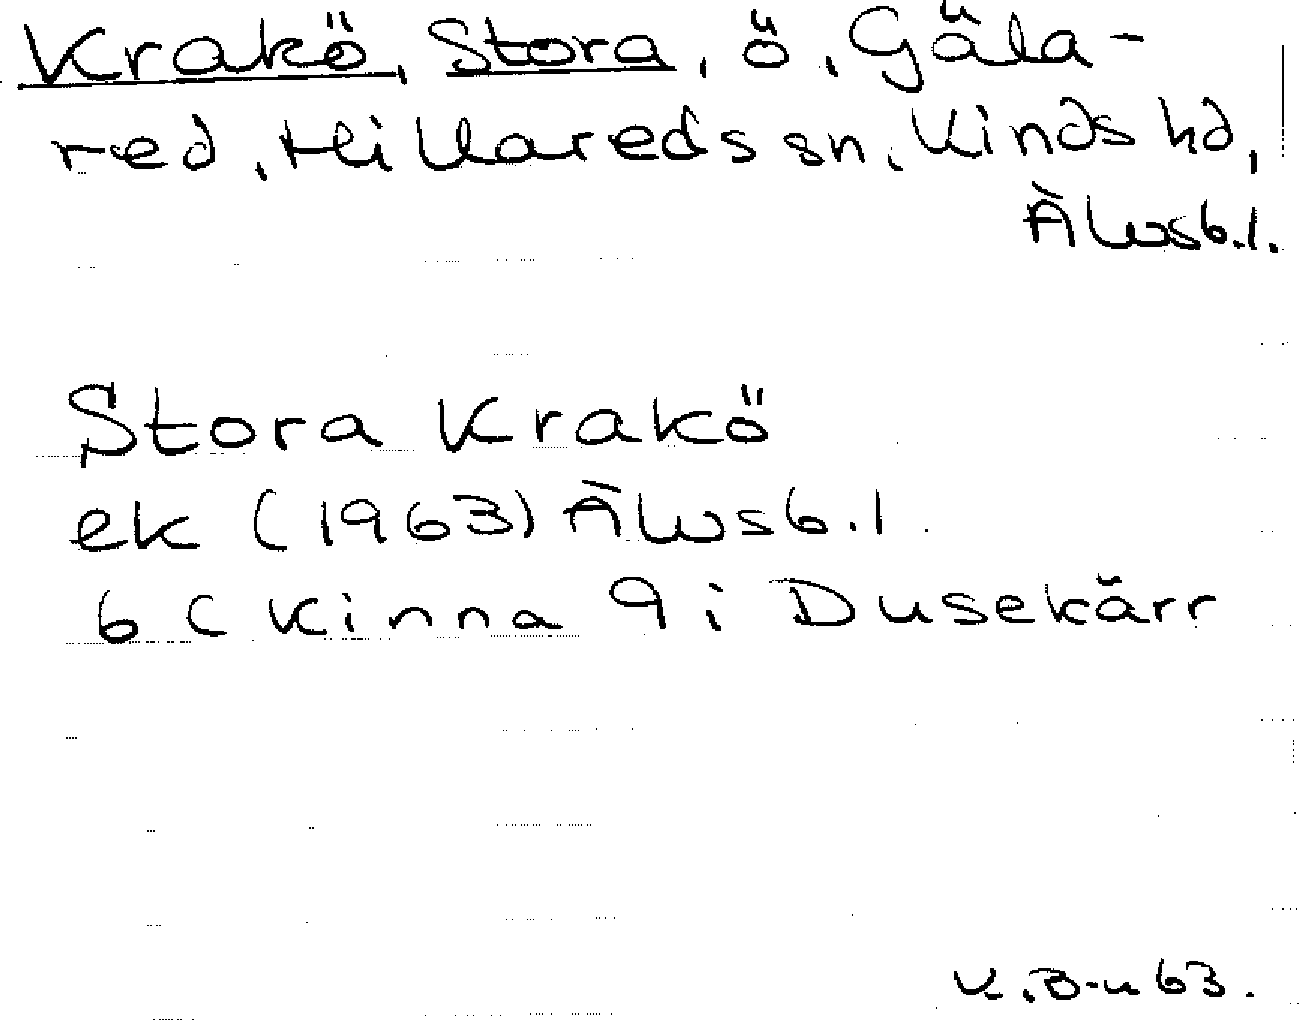 Krakö, Stora, ö, Gäla-
red, Hillareds sn, Kinds hd,
Älvsb.l.
Stora Krakö
ek (1963) Älvsb.l.
6C Kinna 9i Dusekärr
K.B-n 63.